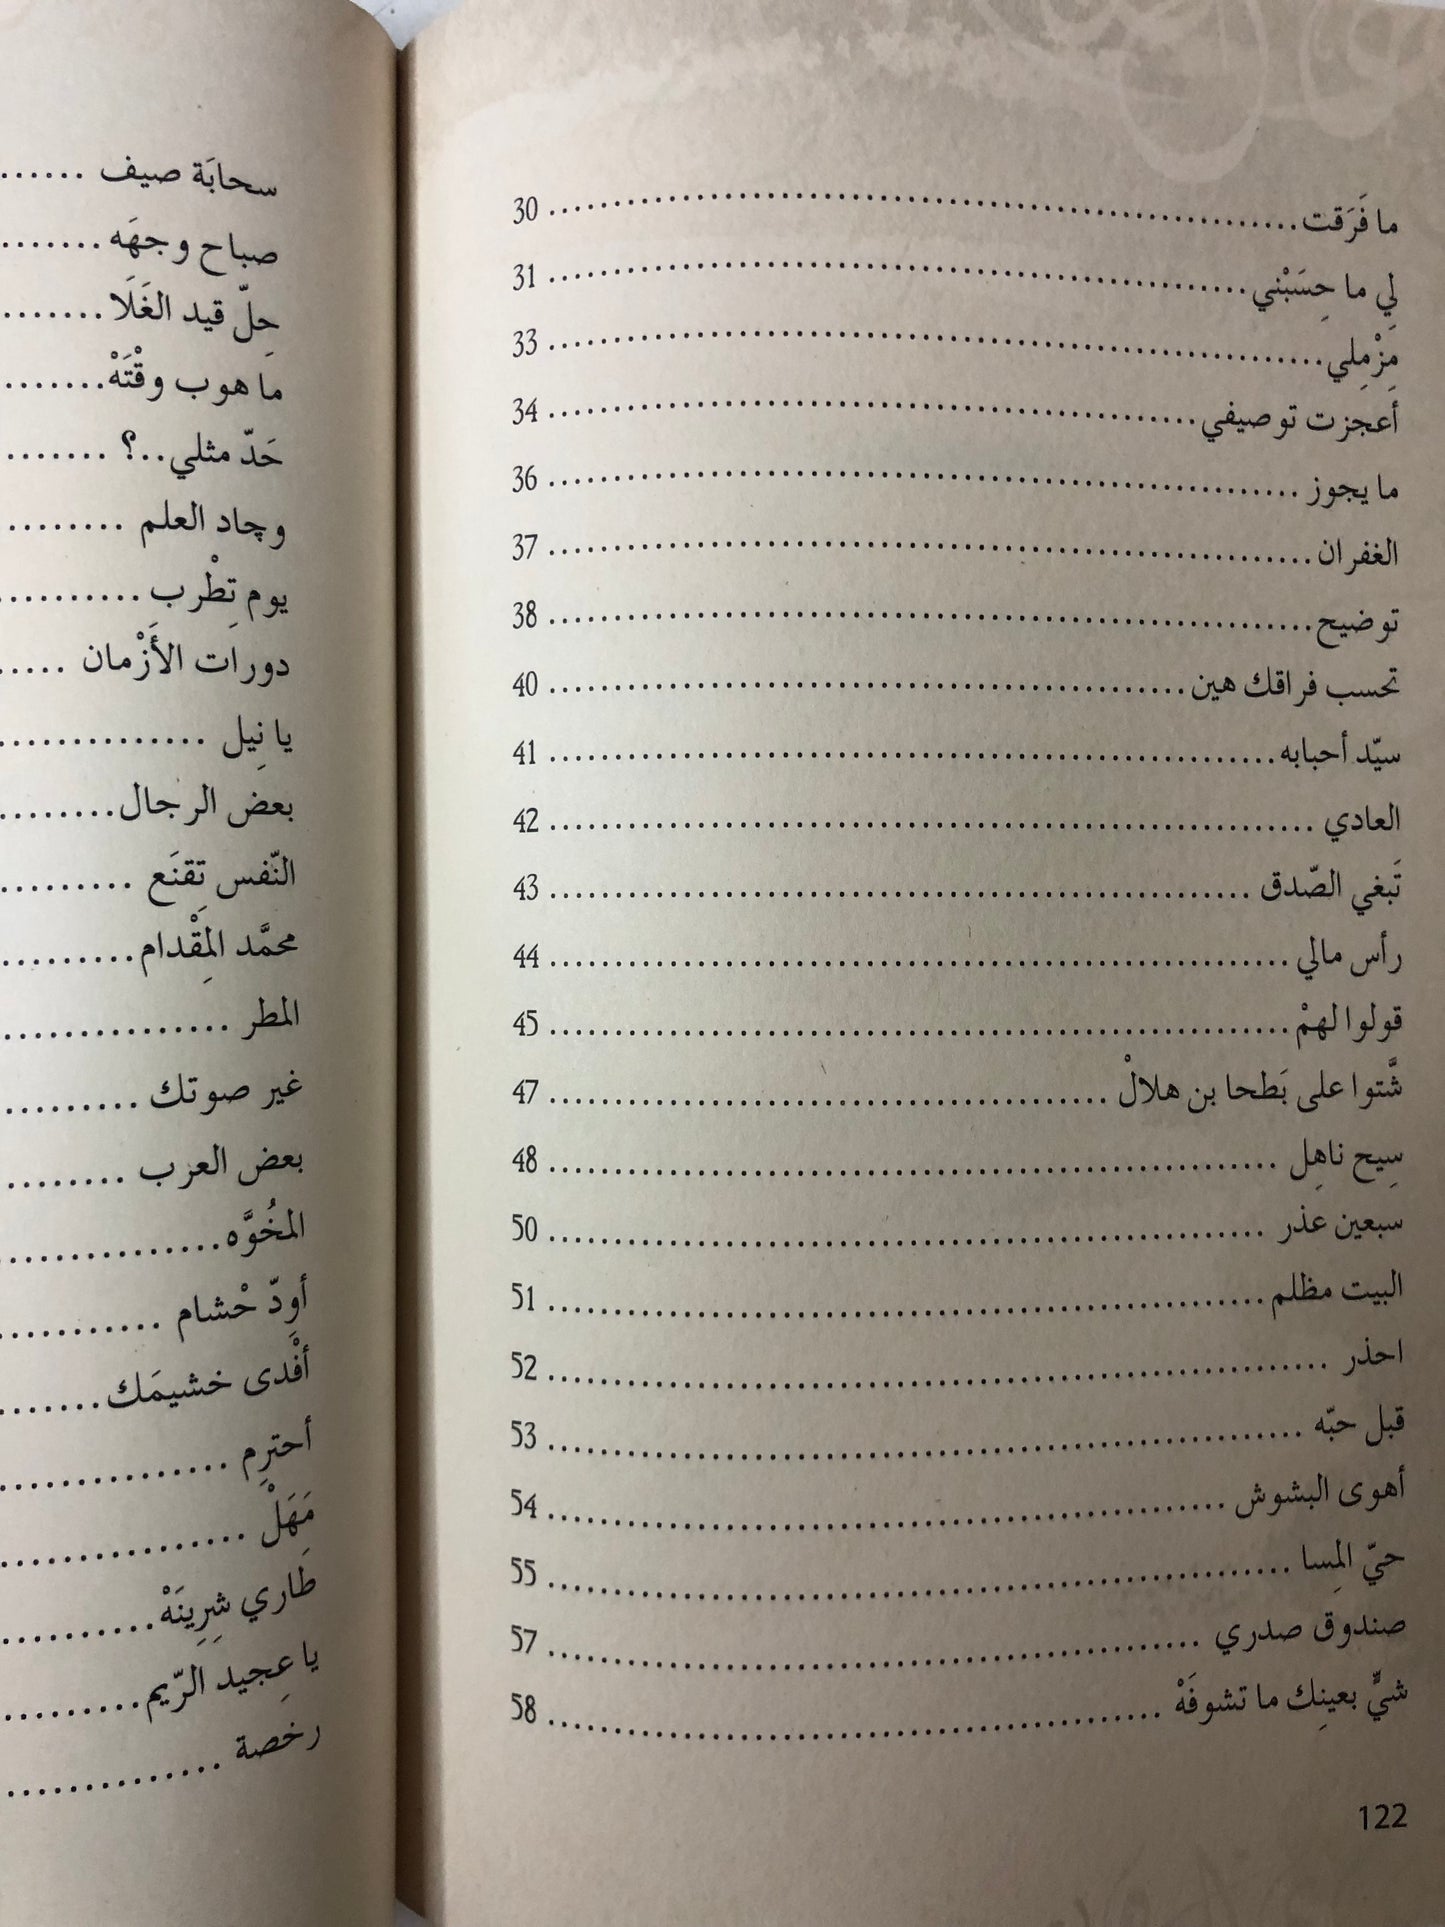 ما فَرَقت 30
لِي ما حِسَبْني 31
مِزْمِلي 33
أعجزت توصيفي 34
ما يجوز 36
الغفران 37
توضيح 38
تحسب فراقك هين 40
سيّد أحبابه 41
العادي 42
تَبغي الصّدق 43
رأس مالي 44
قولوا لهمْ 45
شَّتوا على بَطحا بن هلالْ 47
سِيح ناهِل 48
سبعين عذر 50
البيت مظلم 51
احذر 52
قبل حبّه 53
أهوى البشوش 54
حيّ المِسا 55
صندوق صدري 57
شيٍّ بعينِك ما تشوفَهْ 58
122
سحابَة صيف
صباح وجهَه
حِلّ قيد الغَلَا
ما هوب وقْتَهْ
حَدّ مثلي..؟
وچاد العلم
يوم تِطْرب
دورات الأَزْمان
يا نِيل
بعض الرجال
النّفس تِقنَع
محمَّد المِقْدام
المطر
غير صوتك
بعض العرب
المخُوَّه
أودّ حْشام
أفْدى خشيمَك
أحترِم
مَهَلْ
طَاري شِرِينَهْ
يا عِجيد الرّيم
رخصة